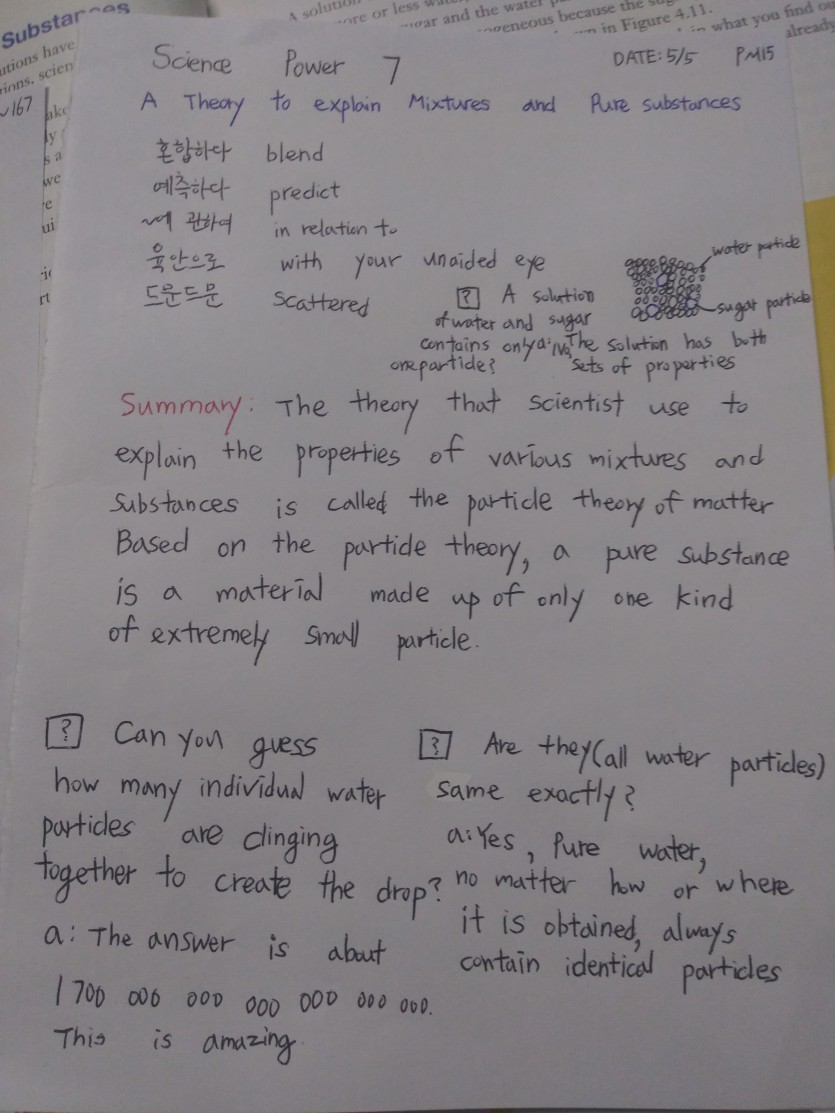 Substances
utions have
ions, scien
167
A solution
ore or less wat
gar and the water p
geneous because the sug
in Figure 4.11.
what you find ou
already
Science Power 7
DATE: 5/5 PM15
A Theory to explain Mixtures and Pure substances
혼합하다 blend
예측하다 predict
~에 관하여 in relation to
육안으로 with your unaided eye
드문드문 scattered
water particle
sugar particle
? A solution
of water and sugar
contains only
one particle?
a: No, The solution has both
sets of properties
Summary: The theory that scientist use to
explain the properties of various mixtures and
Substances is called the particle theory of matter
Based on the particle theory, a pure substance
is a material made up of only one kind
of extremely small particle.
? Can you guess
how many individual water
particles are clinging
together to create the drop?
a: The answer is about
1 700 000 000 000 000 000 000.
This is amazing.
? Are they(all water particles)
same exactly?
a: Yes, Pure water,
no matter how or where
it is obtained, always
contain identical particles